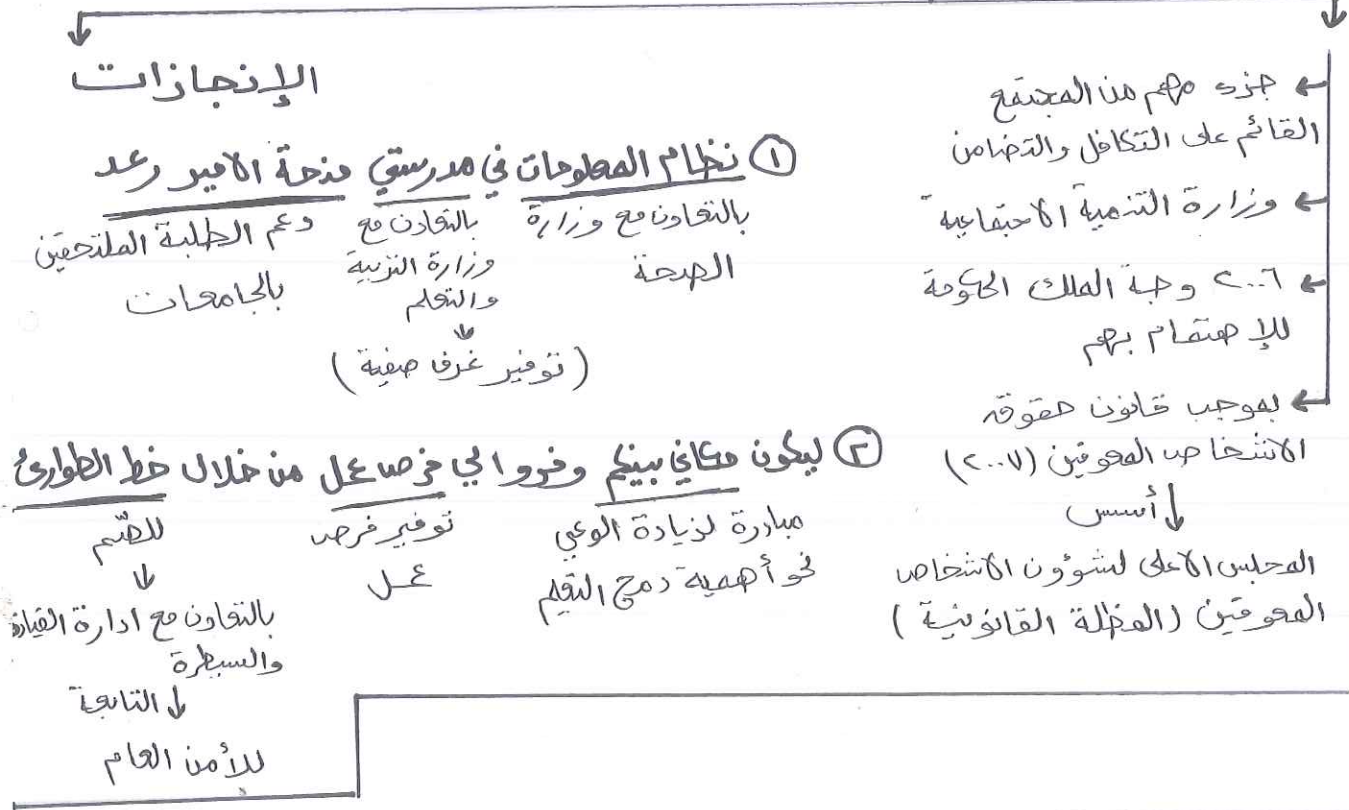 ← جزء مهم من المجتمع
القائم على التكافل والتضامن
← وزارة التنمية الاجتماعية
← ٢٠٠٦ وجه الملك الحكومة
للإهتمام بهم
← بموجب قانون حقوق
الاشخاص المعوقين (٢٠٠٧)
↓ أسس
المجلس الاعلى لشؤون الاشخاص
المعوقين (المظلة القانونية)
الإنجازات
① نظام المعلومات في مدرستي منحة الامير رعد
بالتعاون مع وزارة
الصحة
بالتعاون مع
وزارة التربية
والتعلم
↓
(توفير غرف صفية)
دعم الطلبة الملتحقين
بالجامعات
② ليكون مكاني بينكم وفروا لي فرص عمل من خلال خط الطوارئ
مبادرة لزيادة الوعي
نحو أهمية دمج التعليم
توفير فرص
عمل
للصّم
↓
بالتعاون مع ادارة القيادة
والسيطرة
↓ التابعة
للأمن العام